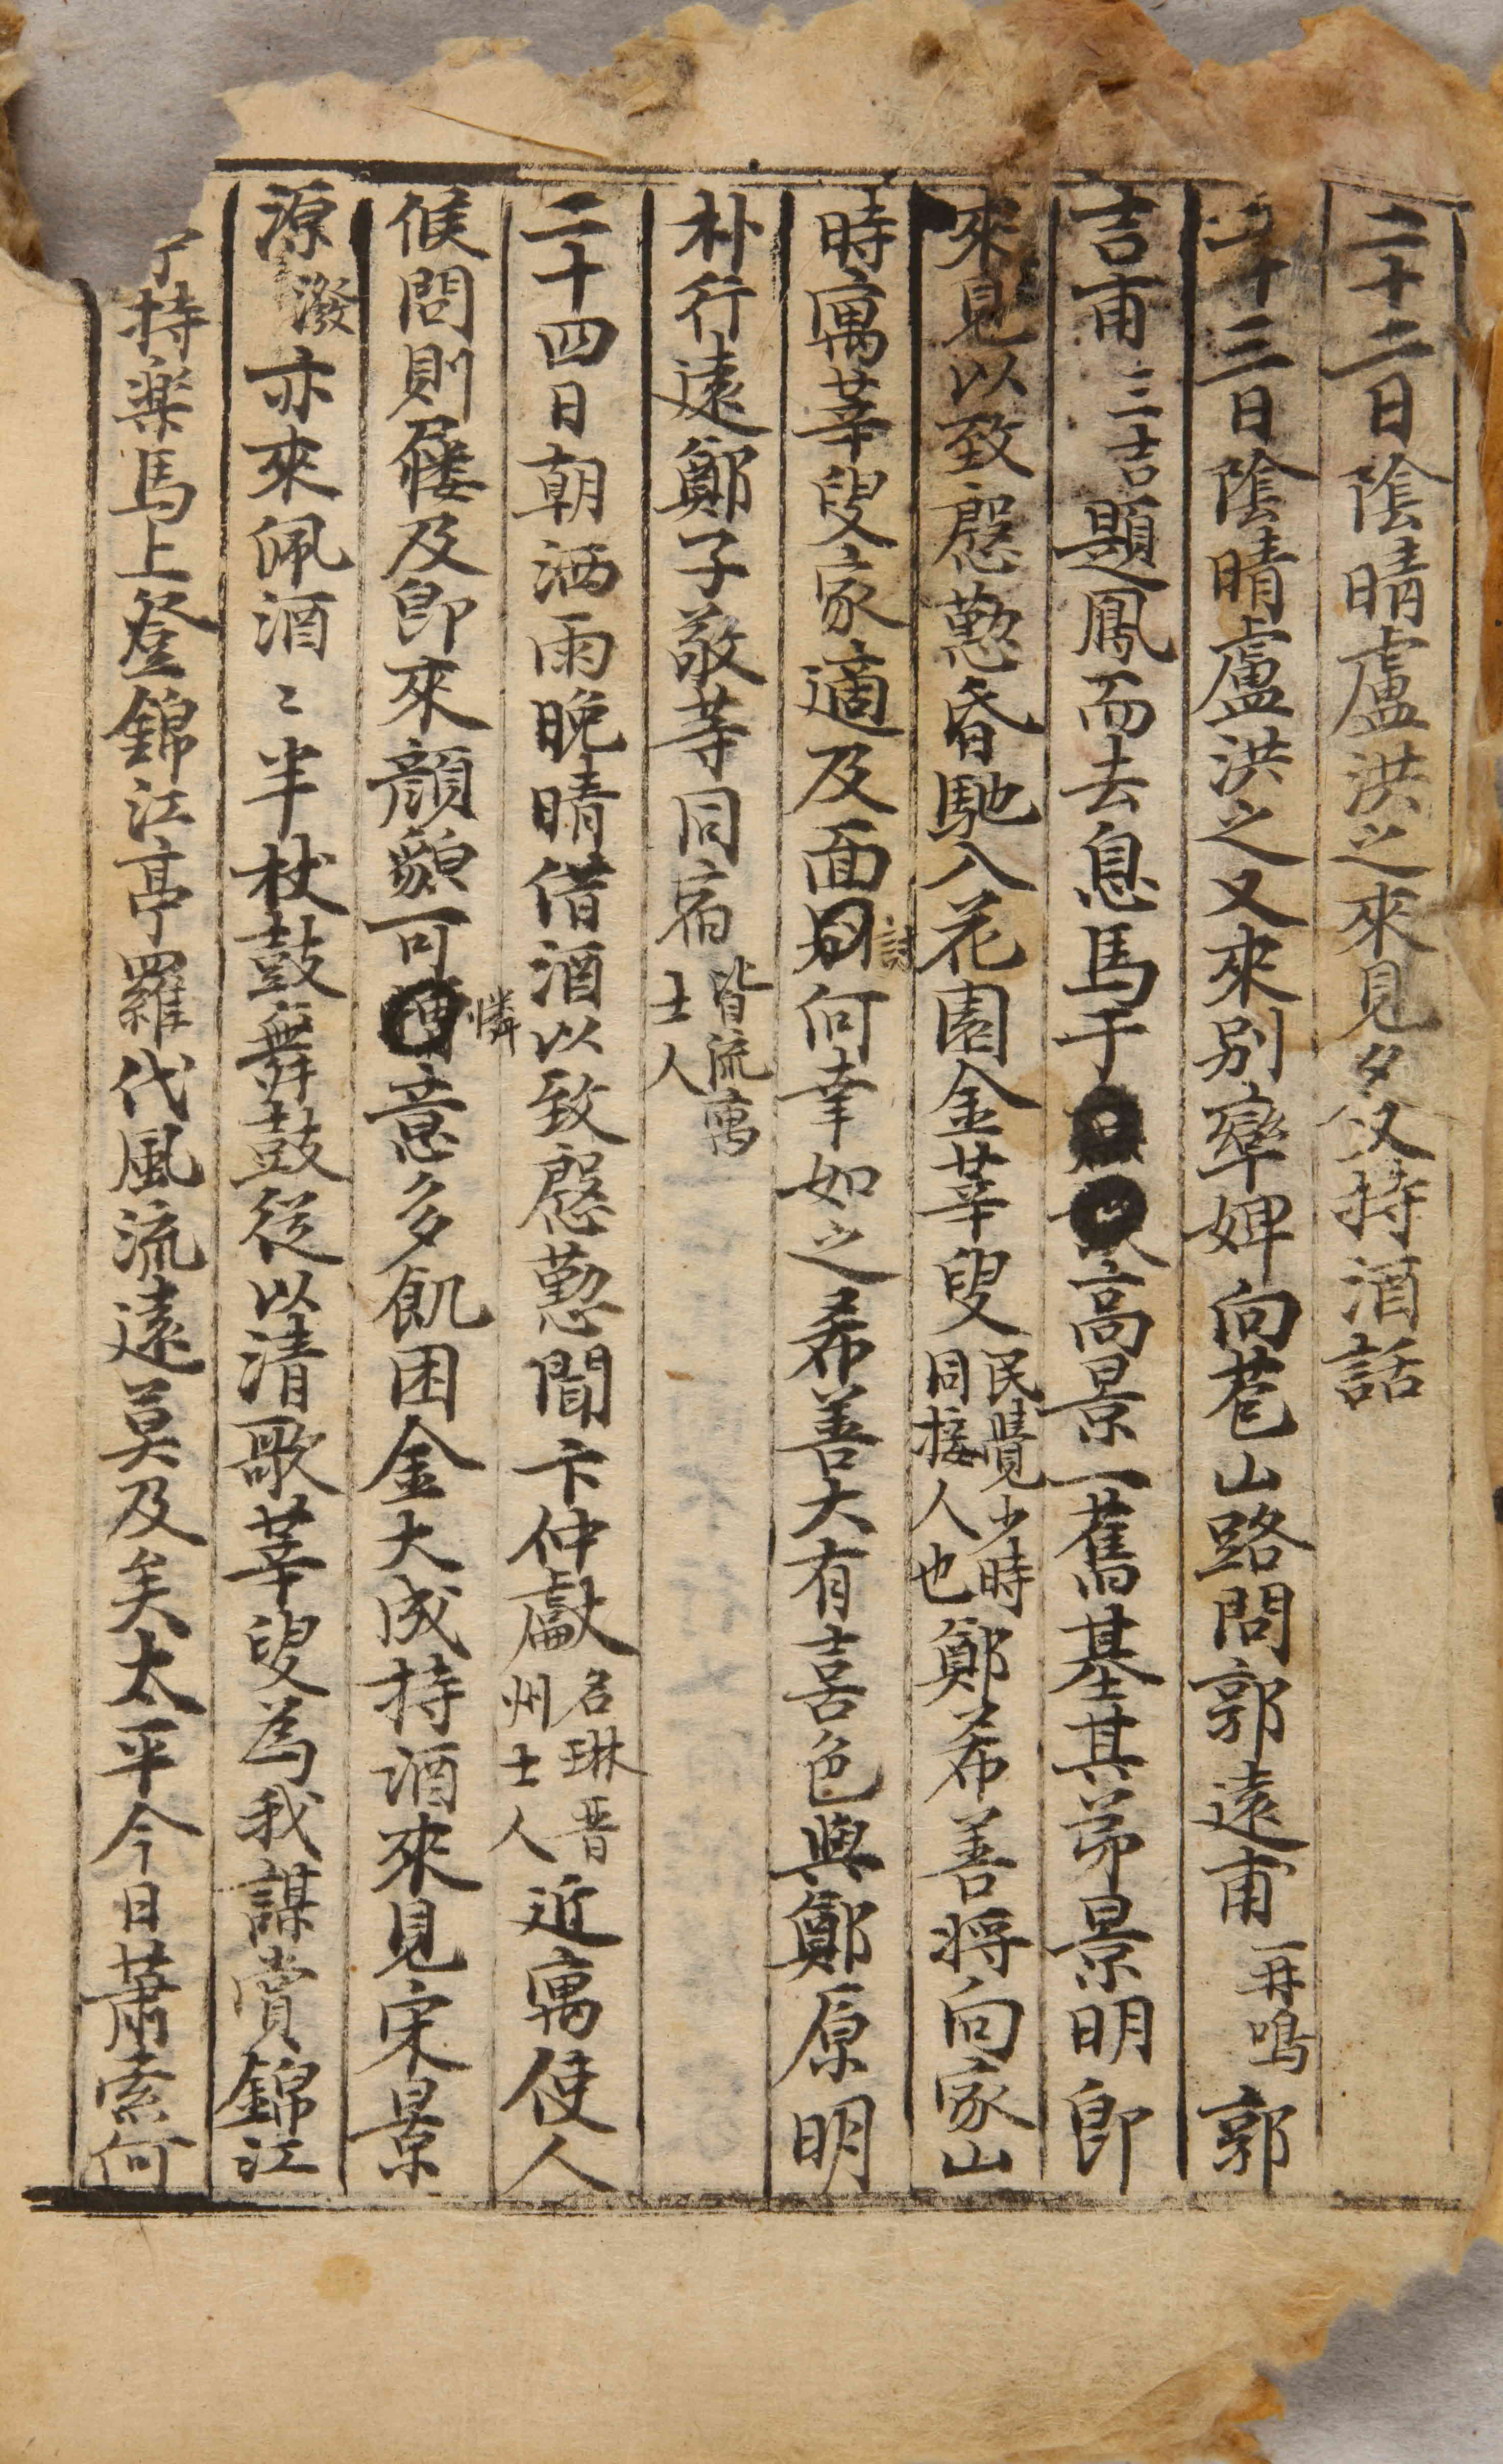 二十二日陰晴盧洪之來見夕又持酒話
二十三日陰晴盧洪之又來別率婢向苞山路問郭遠甫再鳴郭
吉甫三吉題鳳而去息馬于高景一舊基其弟景明卽
來見以致慇懃昏馳入花園金莘叟民覺少時同接人也鄭希善將向家山
時寓莘叟家適及面討何幸如之希善大有喜色與鄭原明
朴行遠鄭子敬等同宿皆流寓士人
二十四日朝洒雨晚晴借酒以致慇懃聞卞仲獻名琳晋州士人近寓使人
候問則屨及卽來顔貌可憐意多飢困金大成持酒來見宋景
源潑亦來佩酒〻半杖鼓舞鼓從以清歌莘叟爲我謀賞錦江
持楽馬上登錦江亭羅代風流遠莫及矣太平今日蕭索何